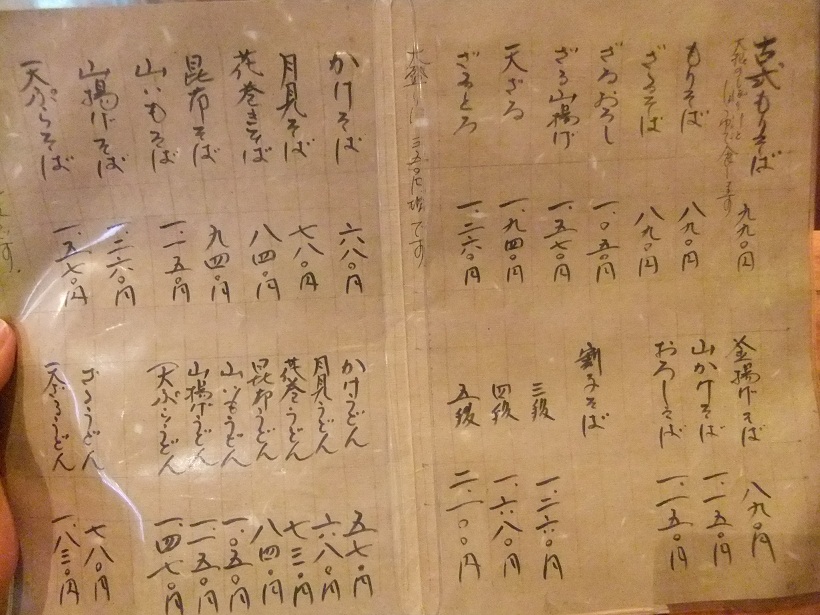 古式もりそば 九九〇円
もりそば 八九〇円
ざるそば 八九〇円
ざるおろし 一、〇五〇円
ざる山揚げ 一、五七〇円
天ざる 一、九四〇円
ざるとろ 一、二六〇円
釜揚げそば 八九〇円
山かけそば 一、一五〇円
おろしそば 一、一五〇円
割子そば
三段 一、二六〇円
四段 一、六八〇円
五段 二、一〇〇円
大盛りは 三五〇円増です
かけそば 六八〇円
月見そば 七八〇円
花巻きそば 八四〇円
昆布そば 九四〇円
山いもそば 一、一五〇円
山揚げそば 一、二六〇円
天ぷらそば 一、五七〇円
かけうどん 五七〇円
月見うどん 六八〇円
花巻うどん 七三〇円
昆布うどん 八四〇円
山いもうどん 一、〇五〇円
山揚げうどん 一、一五〇円
天ぷらうどん 一、四七〇円
ざるうどん 七八〇円
天ざるうどん 一、八三〇円